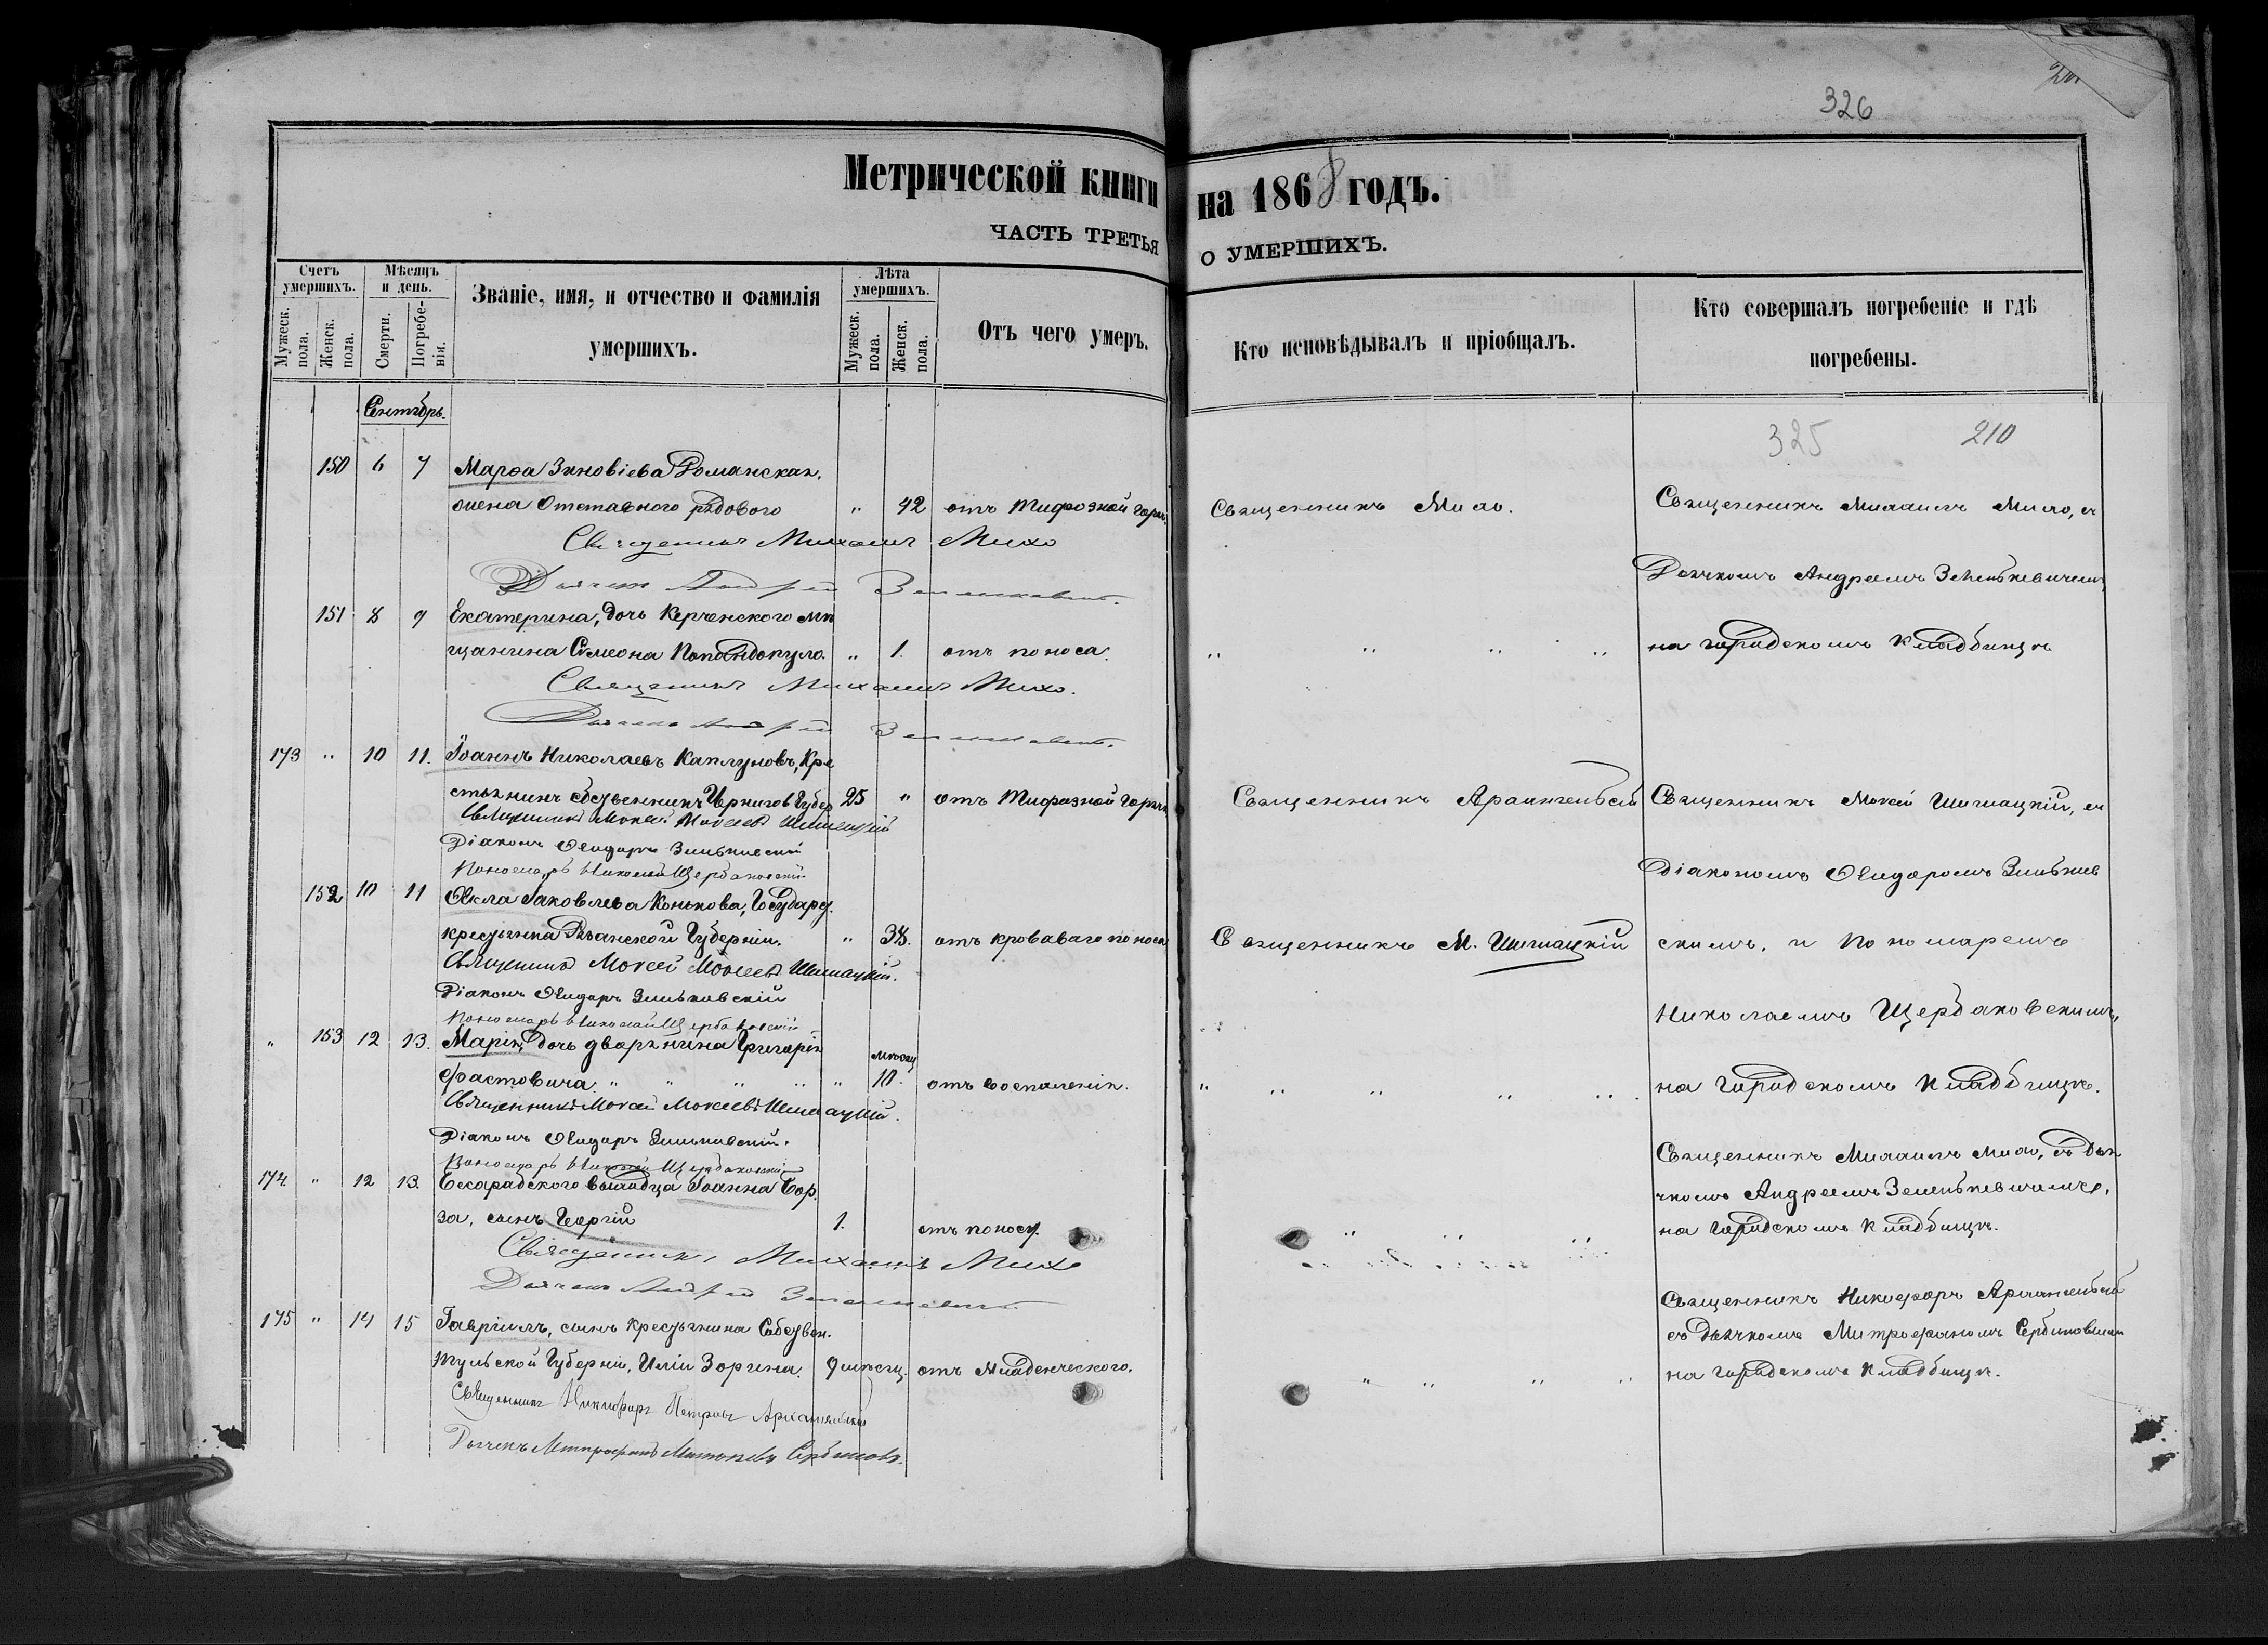 326
Метрической книги на 1868 годъ.
ЧАСТЬ ТРЕТЬЯ О УМЕРШИХЪ.
Счетъ умершихъ.
Мужеск. пола.
Женск. пола.
Мѣсяцъ и день.
Смерти.
Погребе-нія.
Званіе, имя, и отчество и фамилія
умершихъ.
Лѣта умершихъ.
Мужеск. пола.
Женск. пола.
Отъ чего умеръ.
Кто исповѣдывалъ и пріобщалъ.
Кто совершалъ погребеніе и гдѣ
погребены.
Сентябрь.
325 210
150 6 7 Марѳа Зиновіева Романская,
жена Отставного рядового " 42 отъ Тифозной горяч. Священникъ Михо. Священникъ Михаилъ Михо, съ
Священникъ Михаилъ Михо
Дьячкомъ Андреемъ Зеленкевичемъ,
Дьячекъ Андрей Зеленкевичъ.
151 8 9 Екатерина, дочь Керченского мѣ
щанина Симеона Попандопуло. " 1. отъ поноса. " " " " на городскомъ кладбищѣ
Священникъ Михаилъ Михо.
Дьячекъ Андрей Зеленкевичъ.
173 " 10 11. Іоаннъ Николаевъ Каплуновъ, Кре
стьянинъ собственникъ Чернигов Губер 25 " отъ Тифозной горяч. Священникъ Архангельскій Священникъ Мокей Шишацкій, съ
Священникъ Мокей Мокеевъ Шишацкій
Діаконъ Ѳеодоръ Зиньковскій
Пономарь Николай Щербаковскій
Діакономъ Ѳеодоромъ Зиньков
152 10 11 Ѳекла Іаковлева Конькова, Государст.
крестьянка Рязанской Губерніи. " 38. отъ кроваваго поноса Священникъ М. Шишацкій скимъ, и Пономаремъ
Священникъ Мокей Мокеевъ Шишацкій.
Діаконъ Ѳеодоръ Зиньковскій
Николаемъ Щербаковскимъ,
Пономарь Николай Щербаковскій
" 153 12 13. Марія, дочь дворянина Григорія
мѣсяц
Фастовича " " " " " 10. отъ воспаленія. " " " " " на городскомъ кладбищѣ.
Священникъ Мокей Мокеевъ Шишацкій.
Діаконъ Ѳеодоръ Зиньковскій.
Пономарь Николай Щербаковскій
Священникъ Михаилъ Михо, съ Дья
174 " 12 13. Бесарабского выходца Іоанна Бор.
чкомъ Андреемъ Зеленкевичемъ,
за, сынъ Георгій 1. отъ поноса. " " " на городскомъ кладбищѣ.
Священникъ Михаилъ Михо
Дьячекъ Андрей Зеленкевичъ.
Священникъ Никифоръ Архангельскій
175 " 14 15 Гавріилъ, сынъ крестьянина Собствен.
съ Дьячкомъ Митрофаномъ Сербиновымъ
Тульской Губерніи, Иліи Зорина. 9 мѣсяц. отъ Младенческого. " " " " на городскомъ кладбищѣ.
Священникъ Никифоръ Петровъ Архангельскій
Дьячекъ Митрофанъ Сербиновъ.